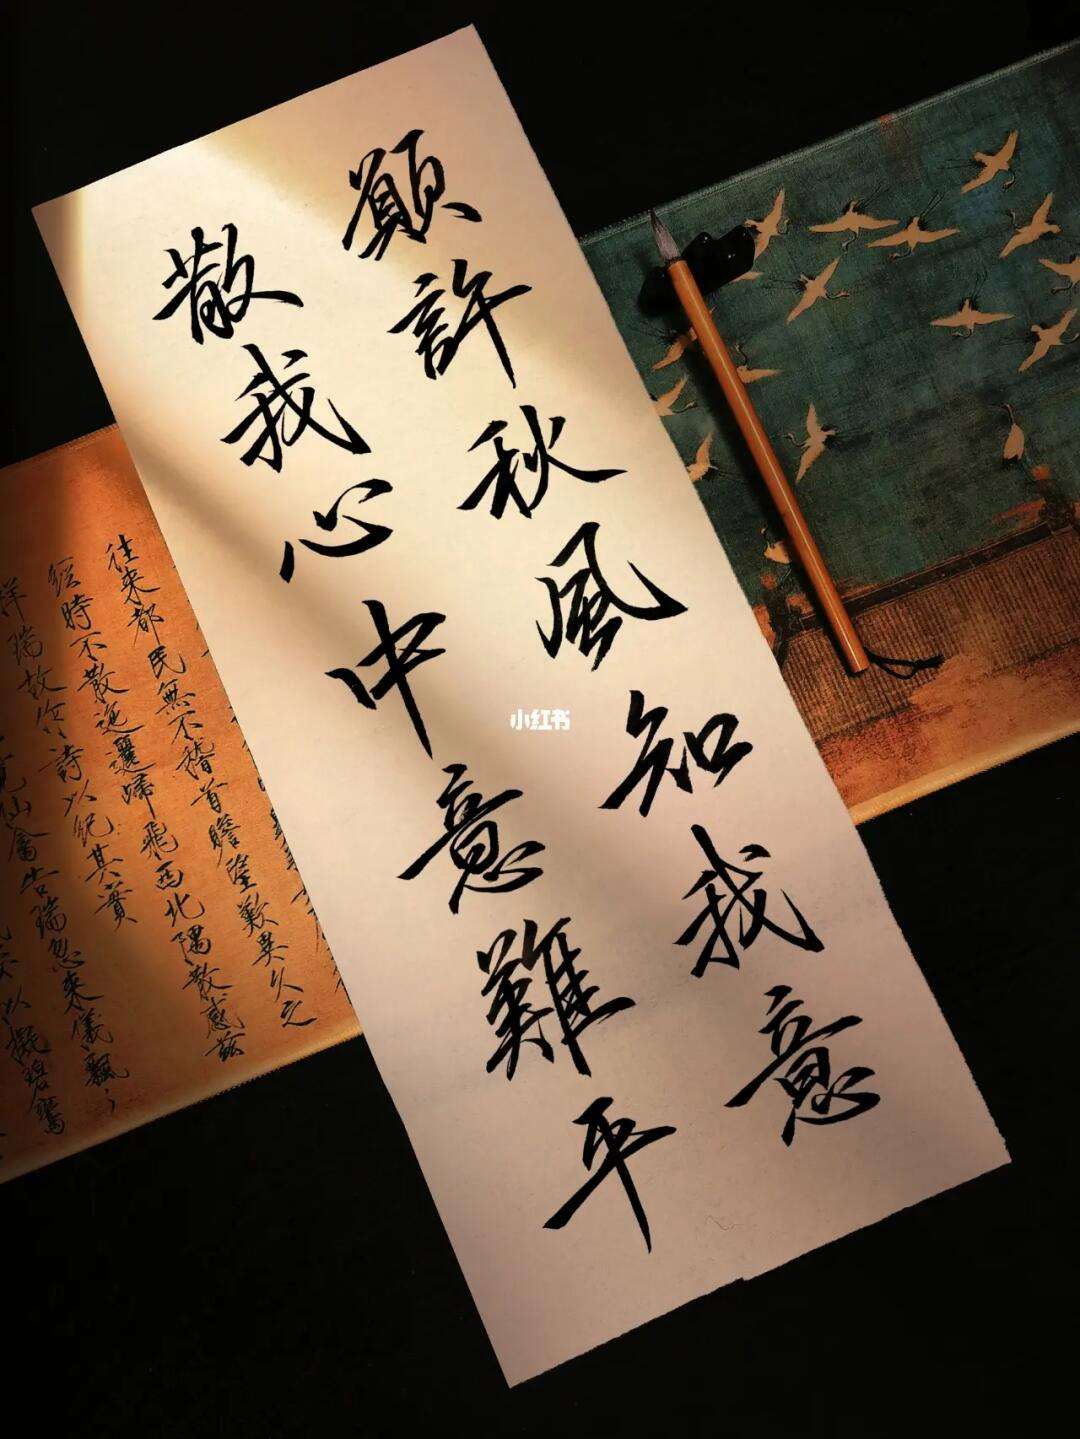 願許秋風知我意
散我心中意難平
小红书
往来都民無不稽首瞻望歎異久之
經時不散迤邐歸飛西北隅散感茲
祥瑞故作詩以紀其實
仙禽告瑞忽来儀飄々
以擬碧鸞